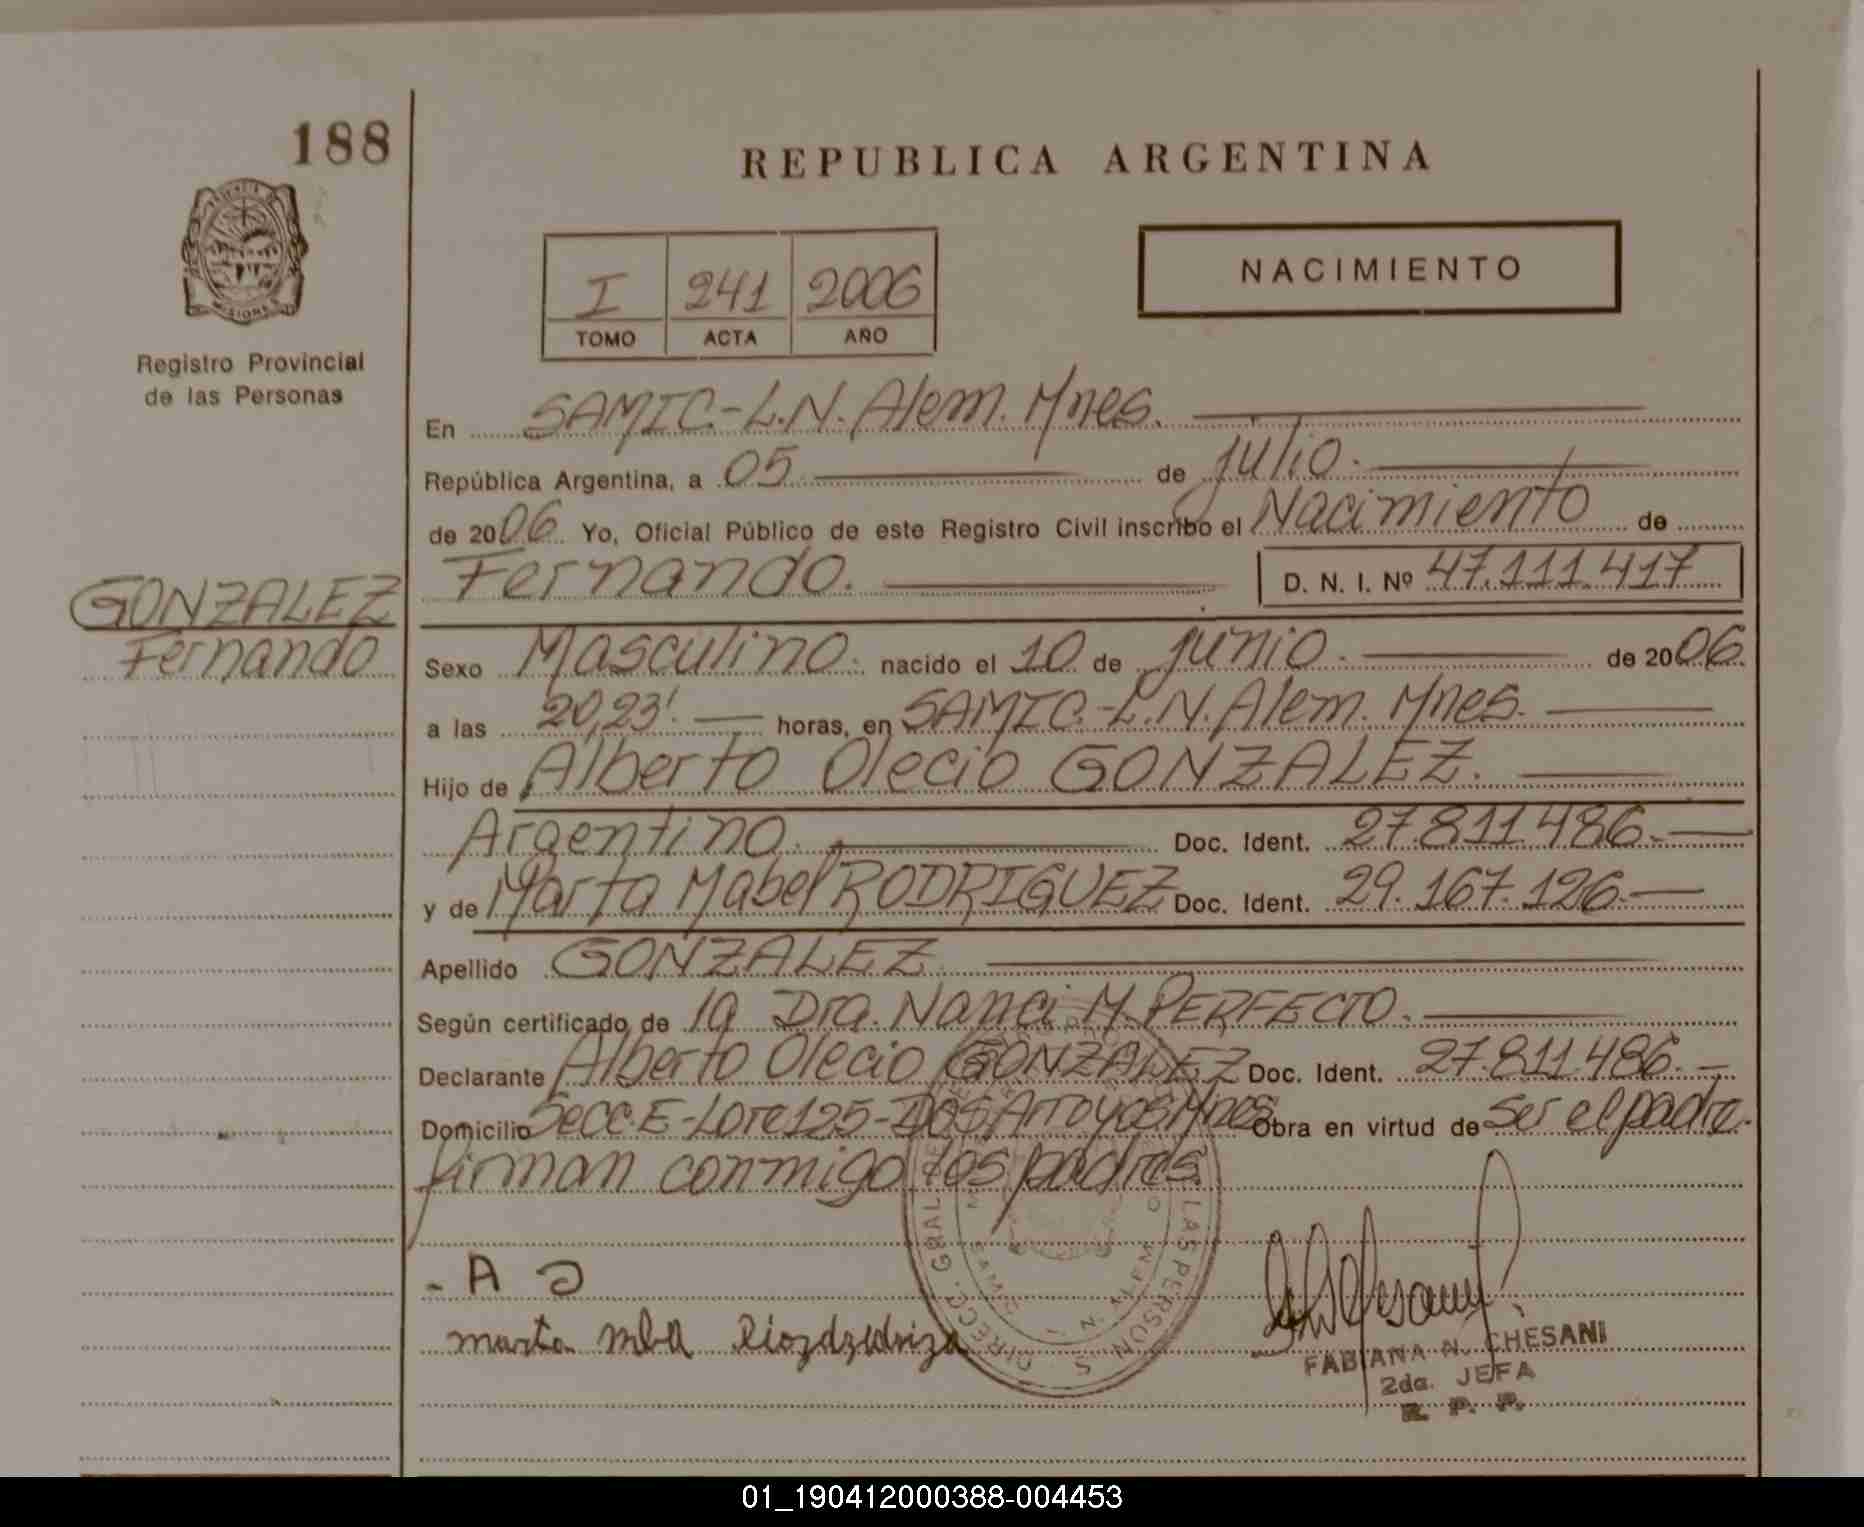 188
REPUBLICA ARGENTINA
NACIMIENTO
I 241 2006
TOMO ACTA AÑO
Registro Provincial
de las Personas
En SAMIC.-L.N. Alem. Mnes.
República Argentina, a 05 de julio.
de 2006 Yo, Oficial Público de este Registro Civil inscribo el Nacimiento de
Fernando. D. N. I. Nº 47.111.417
GONZALEZ
Fernando
Sexo Masculino. nacido el 10 de junio. de 2006.
a las 20,23'. horas, en SAMIC.-L.N. Alem. Mnes.
Hijo de Alberto Olecio GONZALEZ.
Argentino. Doc. Ident. 27.811.486.-
y de Marta Mabel RODRIGUEZ Doc. Ident. 29.167.126.-
Apellido GONZALEZ
Según certificado de la Dra. Nanci M. PERFECTO.
Declarante Alberto Olecio GONZALEZ Doc. Ident. 27.811.486.-
Domicilio Secc. E-Lote 125-DOS Arroyos Mnes Obra en virtud de ser el padre.
firman conmigo los padres.
- A
marta
FABIANA N. CHESANI
2da. JEFA
R. P. P.
DIRECC. GRAL. DE LAS PERSONAS
SAMIC
01_190412000388-004453